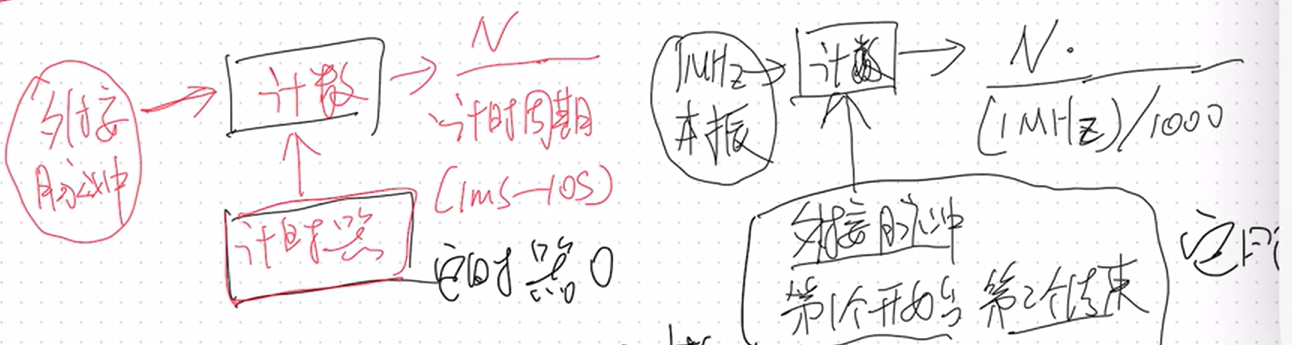 外接
脉冲
计数
N
计时周期
(1ms—10s)
计时器
定时器0
1MHz
本振
计数
N
(1MHz)/1000
外接脉冲
第1个开始 第2个结束